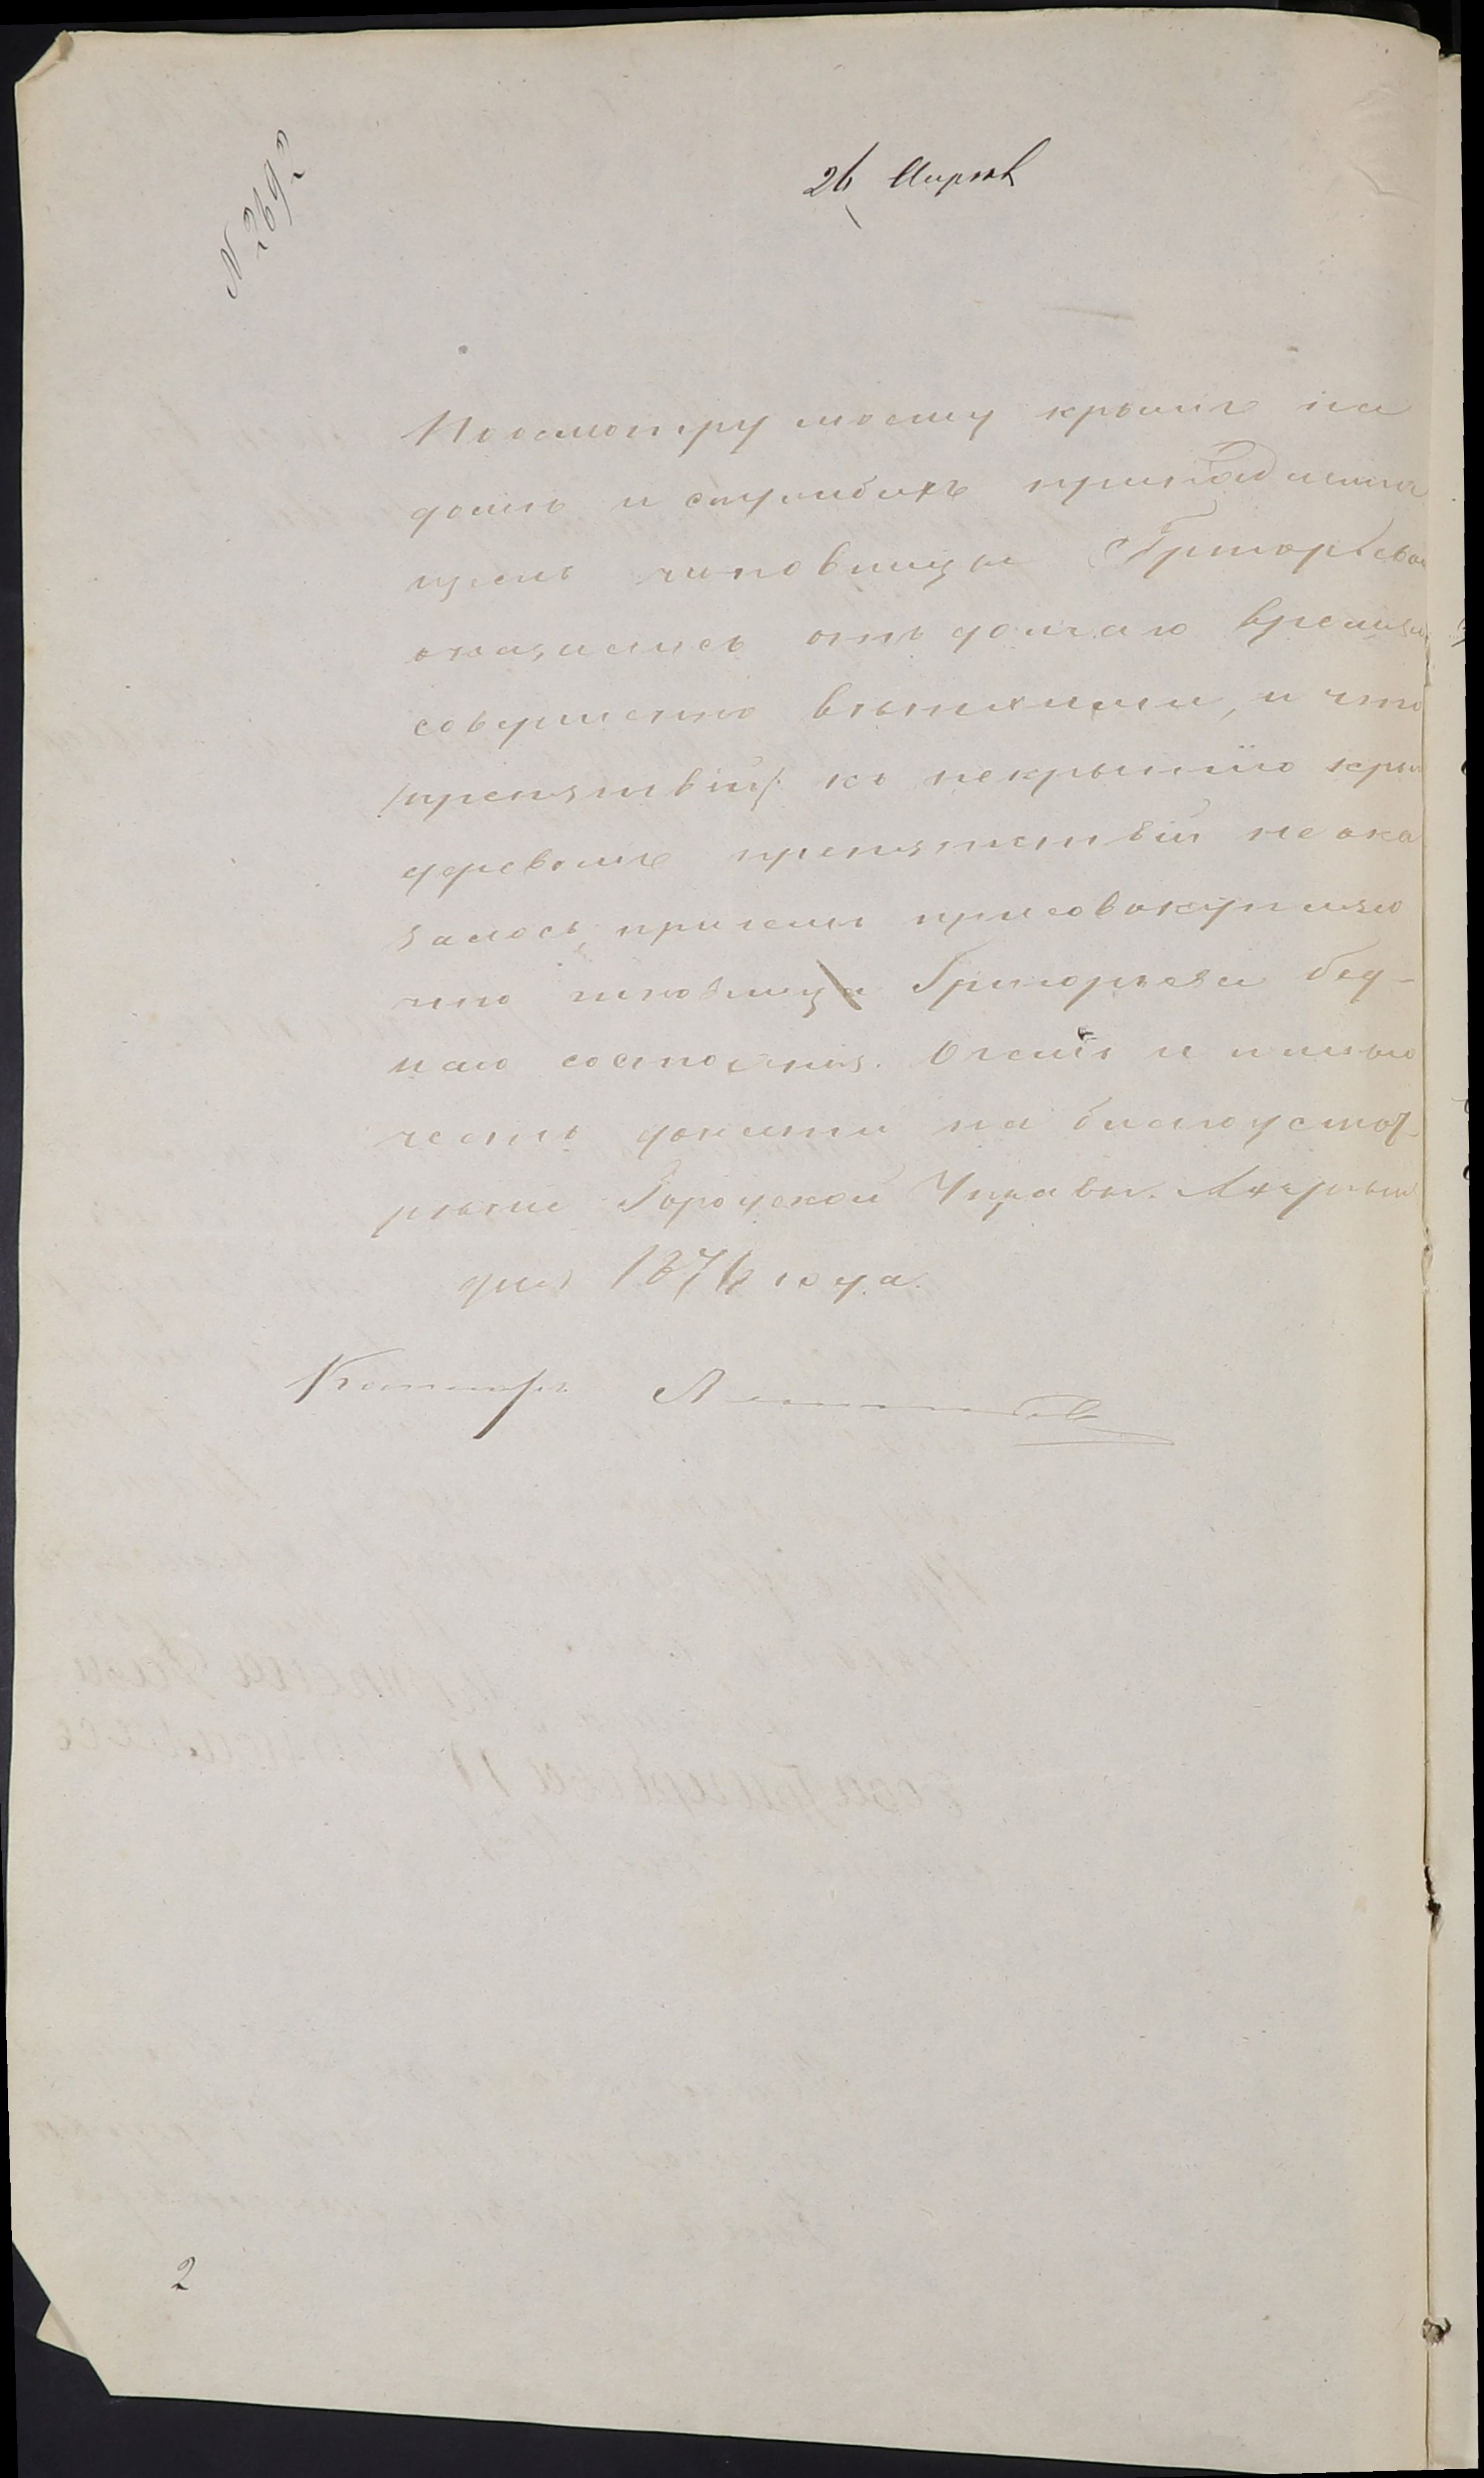 № 2692
26 Апреля
По осмотру моему крыши на
доме и службахъ принадлежа
щемъ чиновницы Григорьевой
оказались отъ долгаго времени
совершенно ветхими, и что
препятствій къ покрытію крыш
деревомъ препятствій не ока
залось, причемъ присовокупляю
что чиновница Григорьева бед-
наго состоянія. О чемъ и имею
честь донести на благоусмот-
рение Городской Управы. Апреля
дня 1876 года.
2